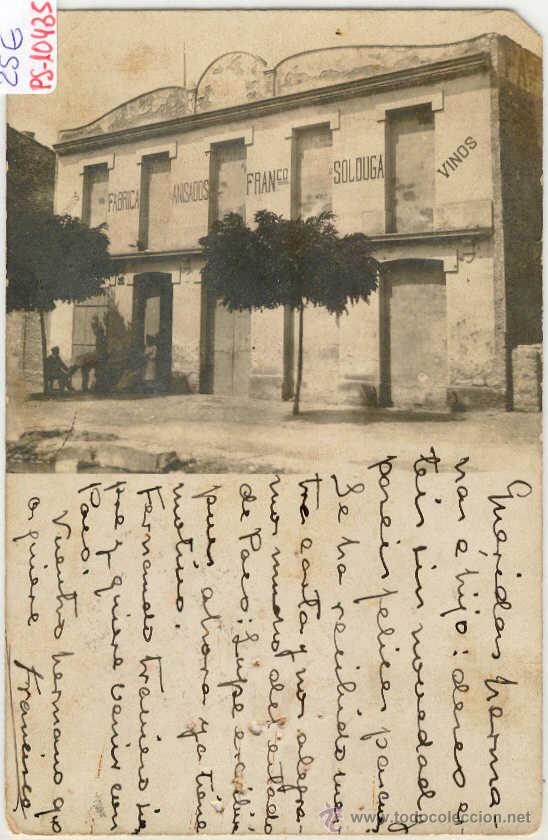 25€
PS-10485
FABRICA
ANISADOS
FRANCO
SOLDUGA
VINOS
Queridas herma-
nas e hijo: deseo es-
teis sin novedad
paseis felices pascuas
Se ha recibido vues-
tra carta y nos alegra-
mos mucho del estado
de Paco; Lupe escribió
pues ahora ya tiene
motivo.
Fernando travieso siem-
pre y quiere venir con
Paco.
Vuestro hermano que
os quiere
Francisco
www.todocoleccion.net